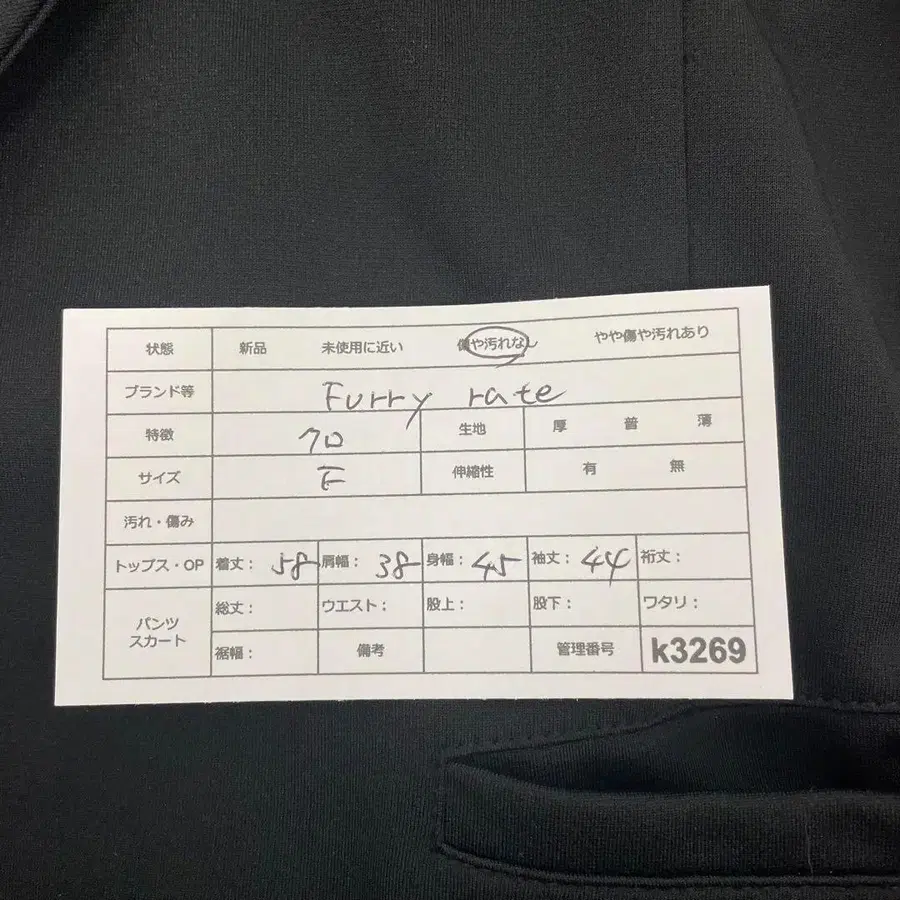 状態 新品 未使用に近い 傷や汚れなし やや傷や汚れあり
ブランド等 Furry rate
特徴 クロ 生地 厚 普 薄
サイズ F 伸縮性 有 無
汚れ・傷み
トップス・OP 着丈: 58 肩幅: 38 身幅: 45 袖丈: 44 裄丈:
パンツ スカート 総丈: ウエスト: 股上: 股下: ワタリ:
裾幅: 備考 管理番号 k3269